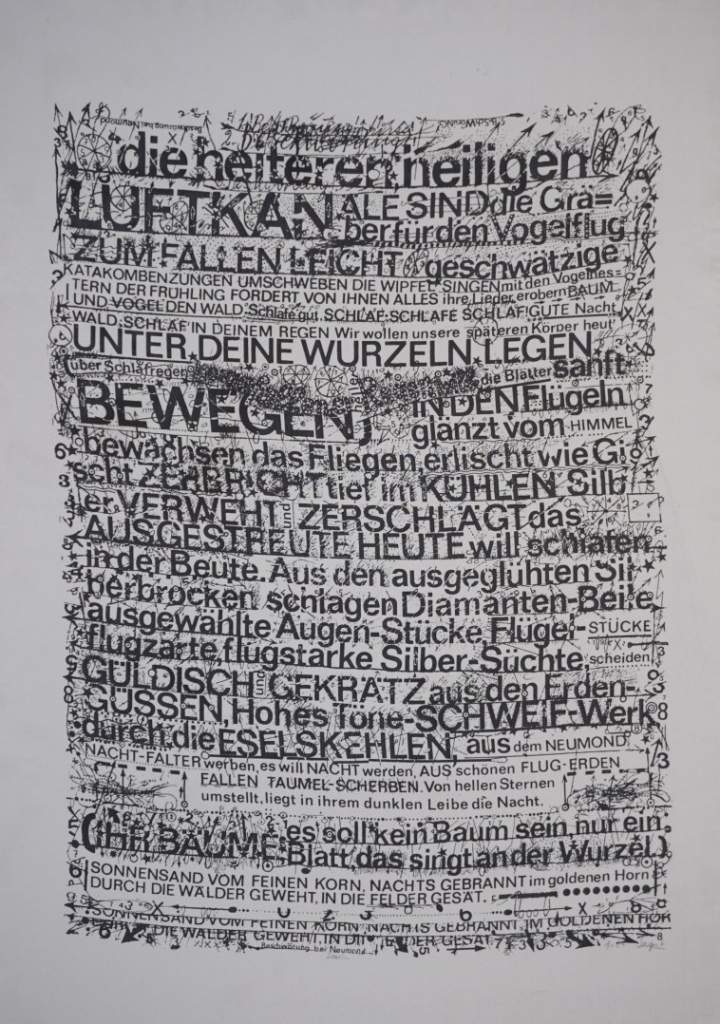 Beschwörung bei Neumond
die heiteren, heiligen
LUFTKANÄLE SIND die Grä=
ber für den Vogelflug
ZUM FALLEN LEICHT geschwätzige
KATAKOMBENZUNGEN UMSCHWEBEN DIE WIPFEL, SINGEN mit den Vogelnes=
TERN DER FRÜHLING FORDERT VON IHNEN ALLES ihre Lieder erobern BAUM
UND VOGEL DEN WALD: Schlafe gut, SCHLAF, SCHLAFE SCHLAF! GUTE Nacht
WALD, SCHLAF IN DEINEM REGEN Wir wollen unsere späteren Körper heut'
UNTER DEINE WURZELN LEGEN
(über Schlafregen die Blätter sanft
BEWEGEN) IN DEN Flügeln
glänzt vom HIMMEL
bewachsen das Fliegen, erlischt wie Gi
scht ZERBRICHT tief im KÜHLEN Silb
er VERWEHT und ZERSCHLÄGT das
AUSGESTREUTE HEUTE will schlafen
in der Beute. Aus den ausgeglühten Sil
berbrocken schlagen Diamanten-Beile
ausgewählte Augen-Stücke, Flügel-STÜCKE
flugzarte, flugstarke Silber-Süchte, scheiden
GÜLDISCH und GEKRÄTZ aus den Erden-
GÜSSEN, Hohes Töne-SCHWEIF-Werk
durch die ESELSKEHLEN, aus dem NEUMOND
NACHT-FALTER werben, es will NACHT werden, AUS schönen FLUG-ERDEN
FALLEN TAUMEL-SCHERBEN. Von hellen Sternen
umstellt, liegt in ihrem dunklen Leibe die Nacht.
(IHR BÄUME: es soll kein Baum sein, nur ein
Blatt, das singt an der Wurzel.)
SONNENSAND VOM FEINEN KORN, NACHTS GEBRANNT im goldenen Horn
DURCH DIE WÄLDER GEWEHT, IN DIE FELDER GESÄT.
SONNENSAND VOM FEINEN KORN, NACHTS GEBRANNT, IM GOLDENEN HOR
DIE WÄLDER GEWEHT, IN DIE FELDER GESÄT
Beschwörung bei Neumond